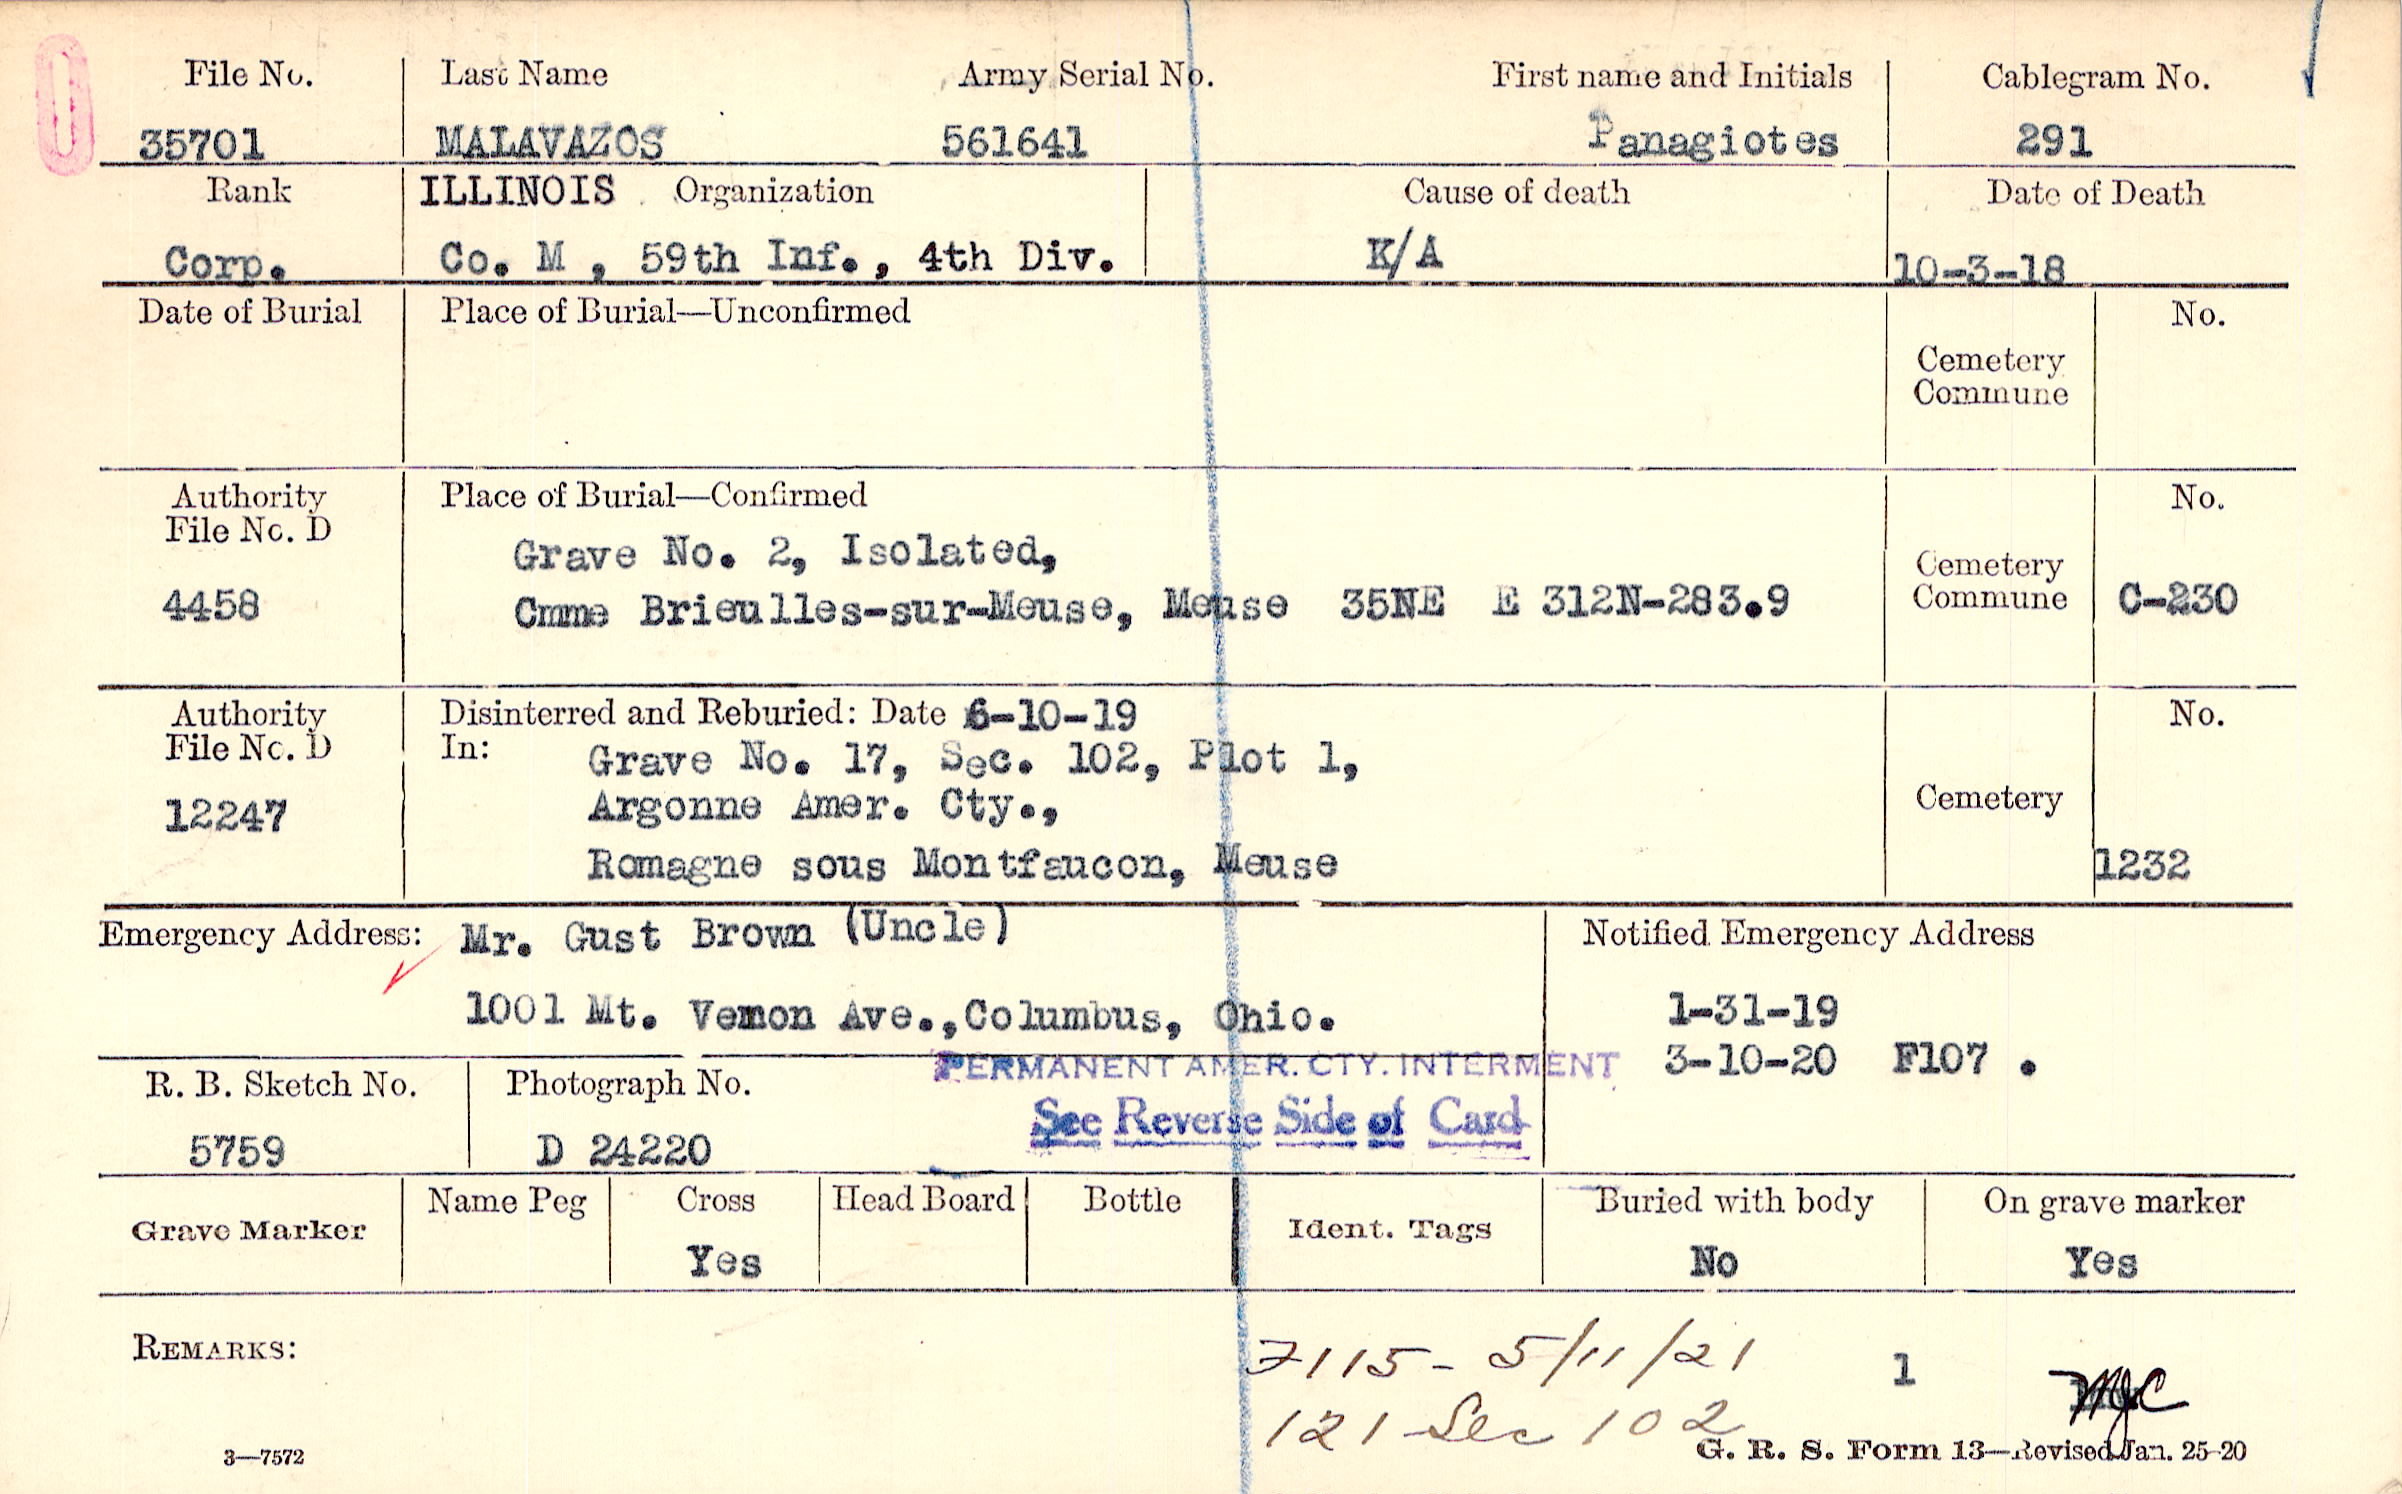 File No. Last Name Army Serial No. First name and Initials Cablegram No.
35701 MALAVAZOS 561641 Panagiotes 291
Rank ILLINOIS Organization Cause of death Date of Death
Corp. Co. M , 59th Inf., 4th Div. K/A 10-3-18
Date of Burial Place of Burial—Unconfirmed No.
Cemetery
Commune
Authority Place of Burial—Confirmed No.
File No. D
Grave No. 2, Isolated,
Cemetery
4458 Cmme Brieulles-sur-Meuse, Meuse 35NE E 312N-283.9 Commune C-230
Authority Disinterred and Reburied: Date 6-10-19 No.
File No. D In: Grave No. 17, Sec. 102, Plot 1,
12247 Argonne Amer. Cty., Cemetery
Romagne sous Montfaucon, Meuse 1232
Emergency Address: Mr. Gust Brown (Uncle) Notified Emergency Address
1001 Mt. Vernon Ave.,Columbus, Ohio. 1-31-19
PERMANENT AMER. CTY. INTERMENT 3-10-20 F107 .
R. B. Sketch No. Photograph No.
See Reverse Side of Card
5759 D 24220
Grave Marker Name Peg Cross Head Board Bottle Ident. Tags Buried with body On grave marker
Yes No Yes
REMARKS: 7115- 5/11/21 1 MJC
121 Sec 102
3—7572 G. R. S. Form 13—Revised Jan. 25-20